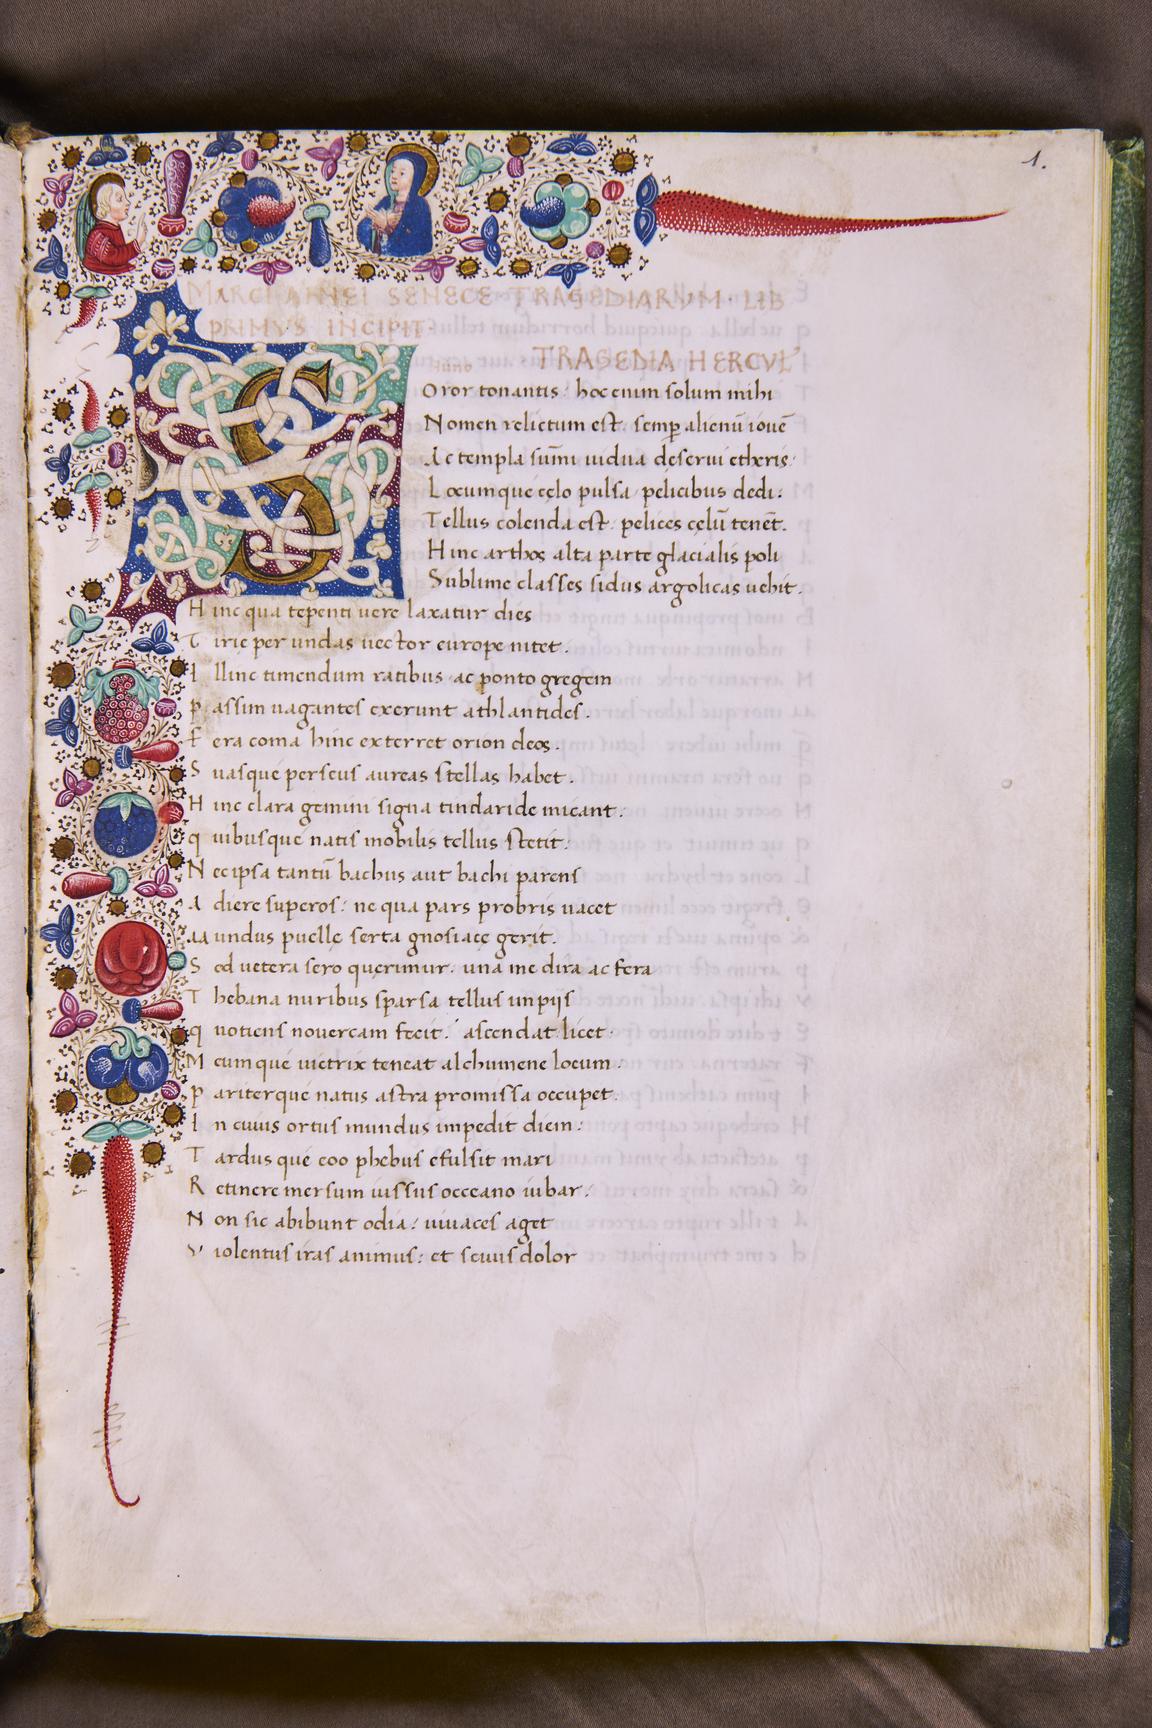 1.
MARCI ANNEI SENECE TRAGEDIARVM · LIB
PRIMVS INCIPIT ·
TRAGEDIA HERCVL'
Iuno
S Oror tonantis : hoc enim solum mihi
Nomen relictum est : semp alienū ioue
Ac templa sūmi uidua deserui etheris ·
Locumque celo pulsa pelicibus dedi :
Tellus colenda est : pelices celū tenēt .
Hinc arthos alta parte glacialis poli
Sublime classes sidus argolicas uehit .
Hinc qua tepenti uere laxatur dies
Tirie per undas uector europe nitet .
Illinc timendum ratibus ac ponto gregem
Passim uagantes exerunt athlantides .
Fera coma hinc exterret orion deos .
Suasque perseus aureas stellas habet .
Hinc clara gemini signa tindaride micant :
quibusque natis mobilis tellus stetit :
Nec ipsa tantū bachus aut bachi parens
Adiere superos : ne qua pars probris uacet
Mundus puelle serta gnosiace gerit .
Sed uetera sero querimur · una me dira ac fera
Thebana nuribus sparsa tellus impijs
quotiens nouercam fecit : ascendat licet ·
Meumque uictrix teneat alchumene locum ·
Pariterque natus astra promissa occupet .
In cuius ortus mundus impedit diem :
Tardusque eoo phebus efulsit mari
Retinere mersum iussus occeano iubar :
Non sic abibunt odia : uiuaces aget
Violentus iras animus : et seuus dolor